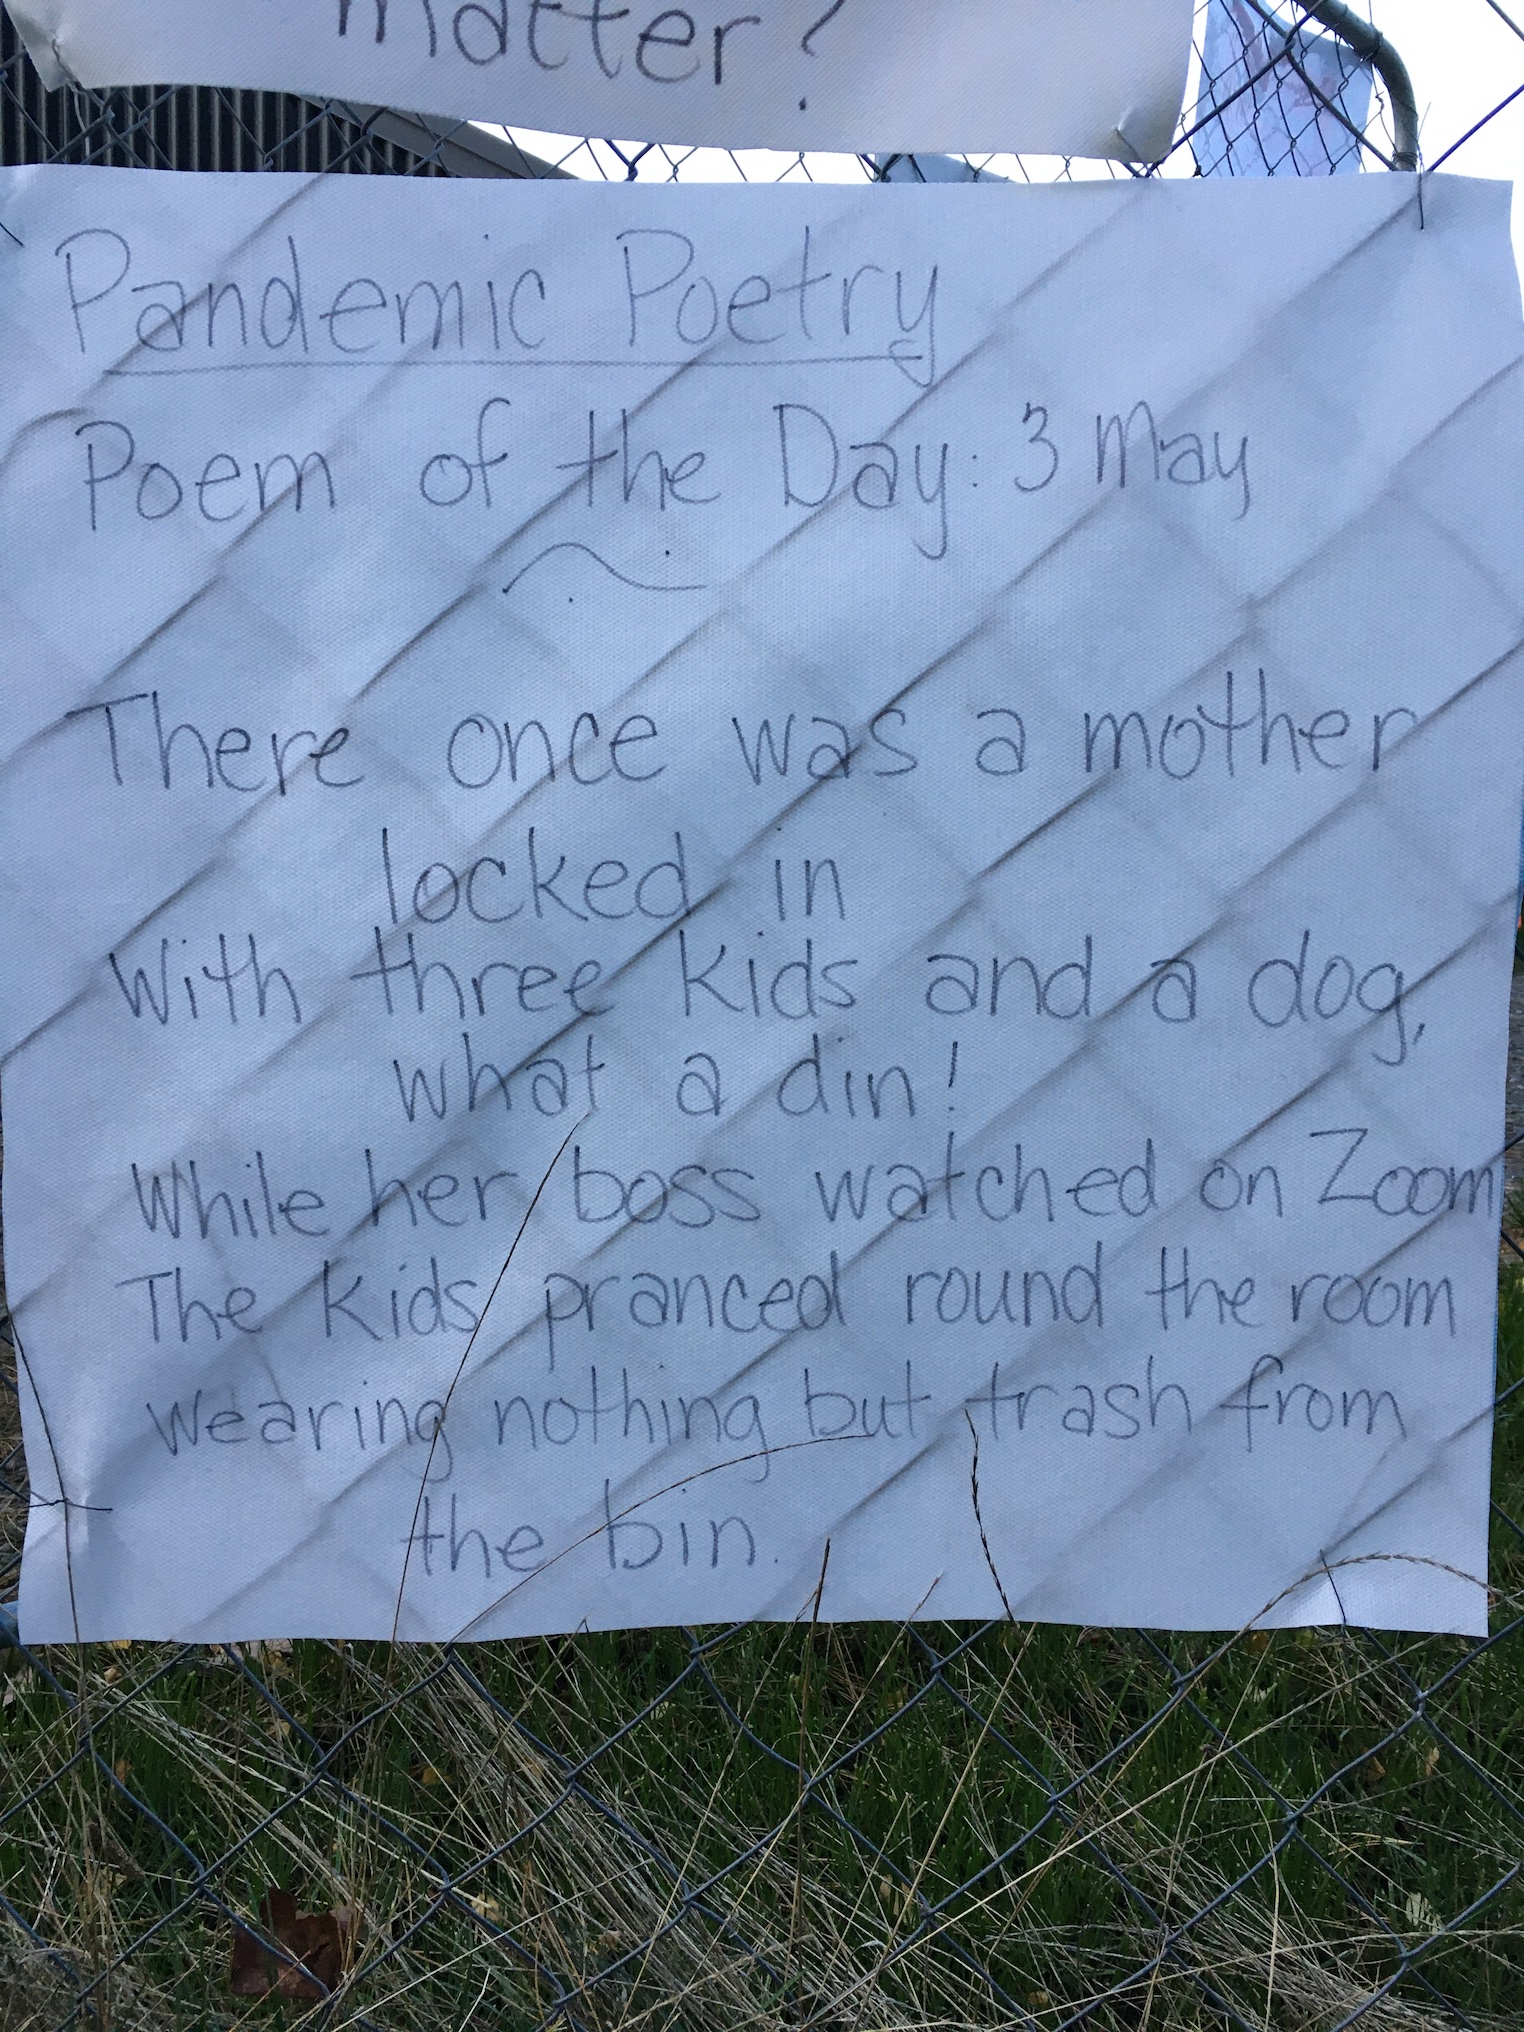 matter?
Pandemic Poetry
Poem of the Day: 3 May
There once was a mother
locked in
With three kids and a dog,
what a din!
While her boss watched on Zoom
The kids pranced round the room
Wearing nothing but trash from
the bin.